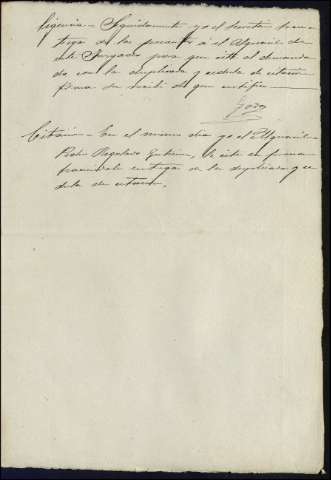 ligencia = Seguidamente yo el Secretario hice en
trega de las presentes á el Alguacil de
este Juzgado para que cite al demanda
do con la duplicada y cedula de citacion
firma su recibi de que certifico =
Citación = En el mismo dia yo el Alguacil
Pedro Regalado, he citado en forma
haciendole entrega de la duplicada y ce
dula de citacion.